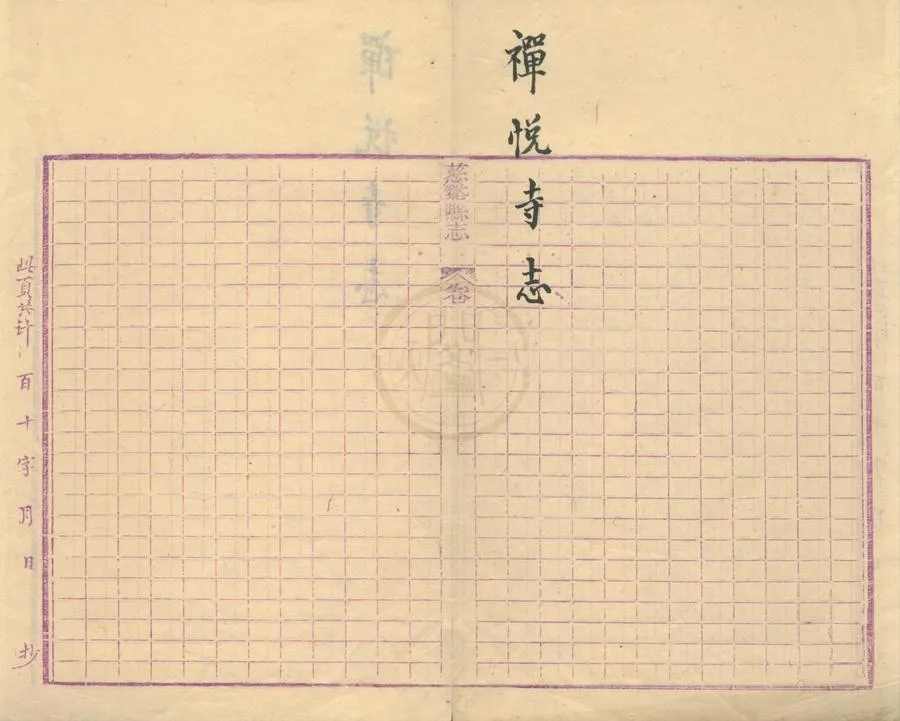 禪悅寺志
慈谿縣志
卷
此頁共計 百十字 月 日 抄